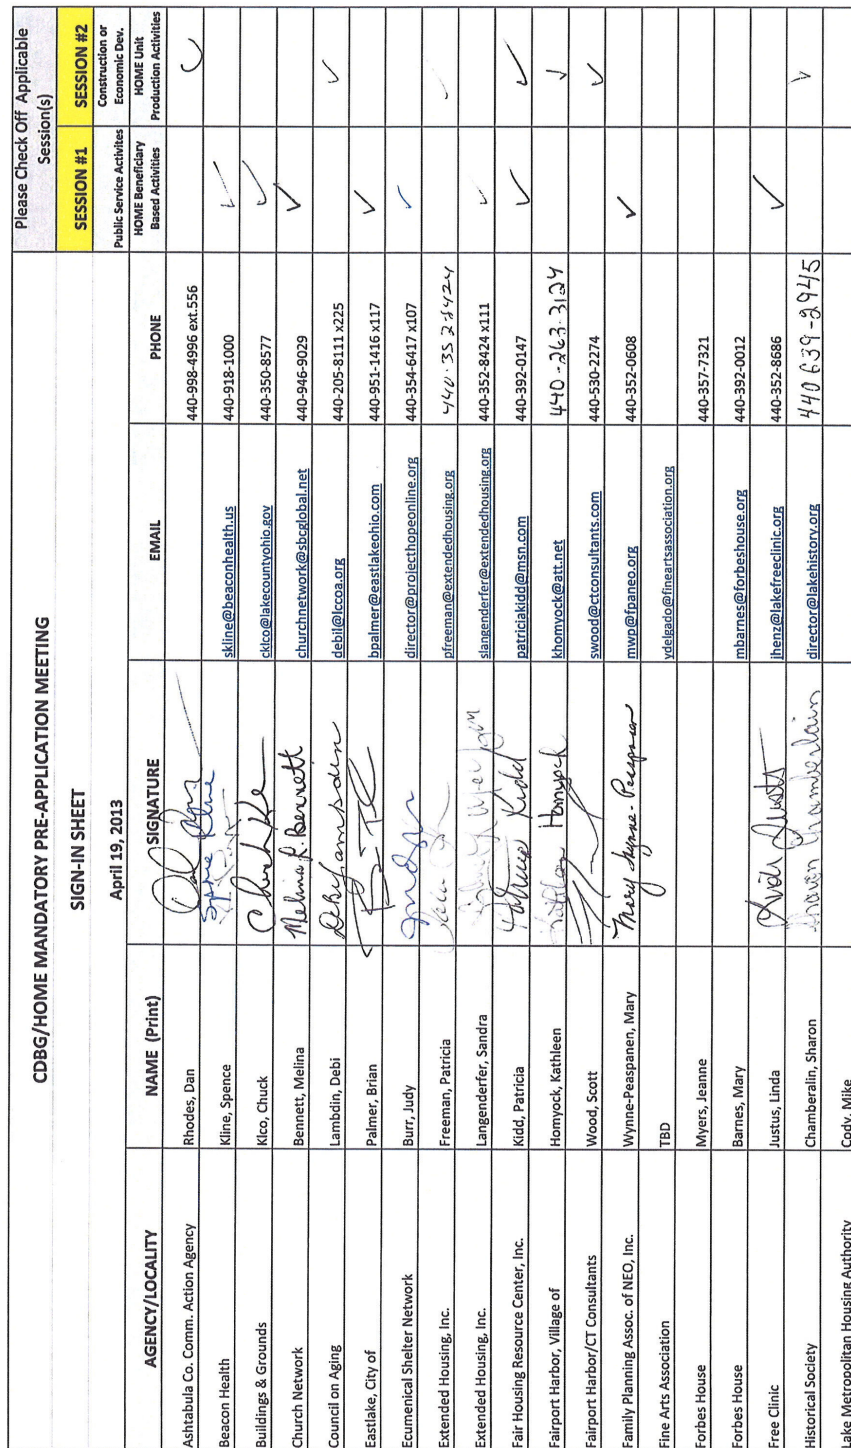 CDBG/HOME MANDATORY PRE-APPLICATION MEETING
Please Check Off Applicable Session(s)
SIGN-IN SHEET
SESSION #1 SESSION #2
April 19, 2013
Public Service Activites Construction or Economic Dev.
AGENCY/LOCALITY NAME (Print) SIGNATURE EMAIL PHONE HOME Beneficiary Based Activities HOME Unit Production Activities
Ashtabula Co. Comm. Action Agency Rhodes, Dan 440-998-4996 ext.556 ✓
Beacon Health Kline, Spence Spence Kline skline@beaconhealth.us 440-918-1000 ✓
Buildings & Grounds Klco, Chuck Chuck Klco cklco@lakecountyohio.gov 440-350-8577 ✓
Church Network Bennett, Melina Melina R. Bennett churchnetwork@sbcglobal.net 440-946-9029 ✓
Council on Aging Lambdin, Debi Debi Lambdin debil@lccoa.org 440-205-8111 x225 ✓
Eastlake, City of Palmer, Brian bpalmer@eastlakeohio.com 440-951-1416 x117 ✓
Ecumenical Shelter Network Burr, Judy director@projecthopeonline.org 440-354-6417 x107 ✓
Extended Housing, Inc. Freeman, Patricia pfreeman@extendedhousing.org 440.352.8424 ✓
Extended Housing, Inc. Langenderfer, Sandra slangenderfer@extendedhousing.org 440-352-8424 x111 ✓
Fair Housing Resource Center, Inc. Kidd, Patricia Patricia Kidd patriciakidd@msn.com 440-392-0147 ✓ ✓
Fairport Harbor, Village of Homyock, Kathleen Kathleen Homyock khomyock@att.net 440-263-3124 ✓
Fairport Harbor/CT Consultants Wood, Scott swood@ctconsultants.com 440-530-2274 ✓
Family Planning Assoc. of NEO, Inc. Wynne-Peaspanen, Mary Mary Wynne-Peaspanen mwp@fpaneo.org 440-352-0608 ✓
Fine Arts Association TBD ydelgado@fineartsassociation.org
Forbes House Myers, Jeanne 440-357-7321
Forbes House Barnes, Mary mbarnes@forbeshouse.org 440-392-0012
Free Clinic Justus, Linda Linda Justus jhenz@lakefreeclinic.org 440-352-8686 ✓
Historical Society Chamberalin, Sharon Sharon Chamberlain director@lakehistory.org 440 639-2945 ✓
Lake Metropolitan Housing Authority Cody, Mike